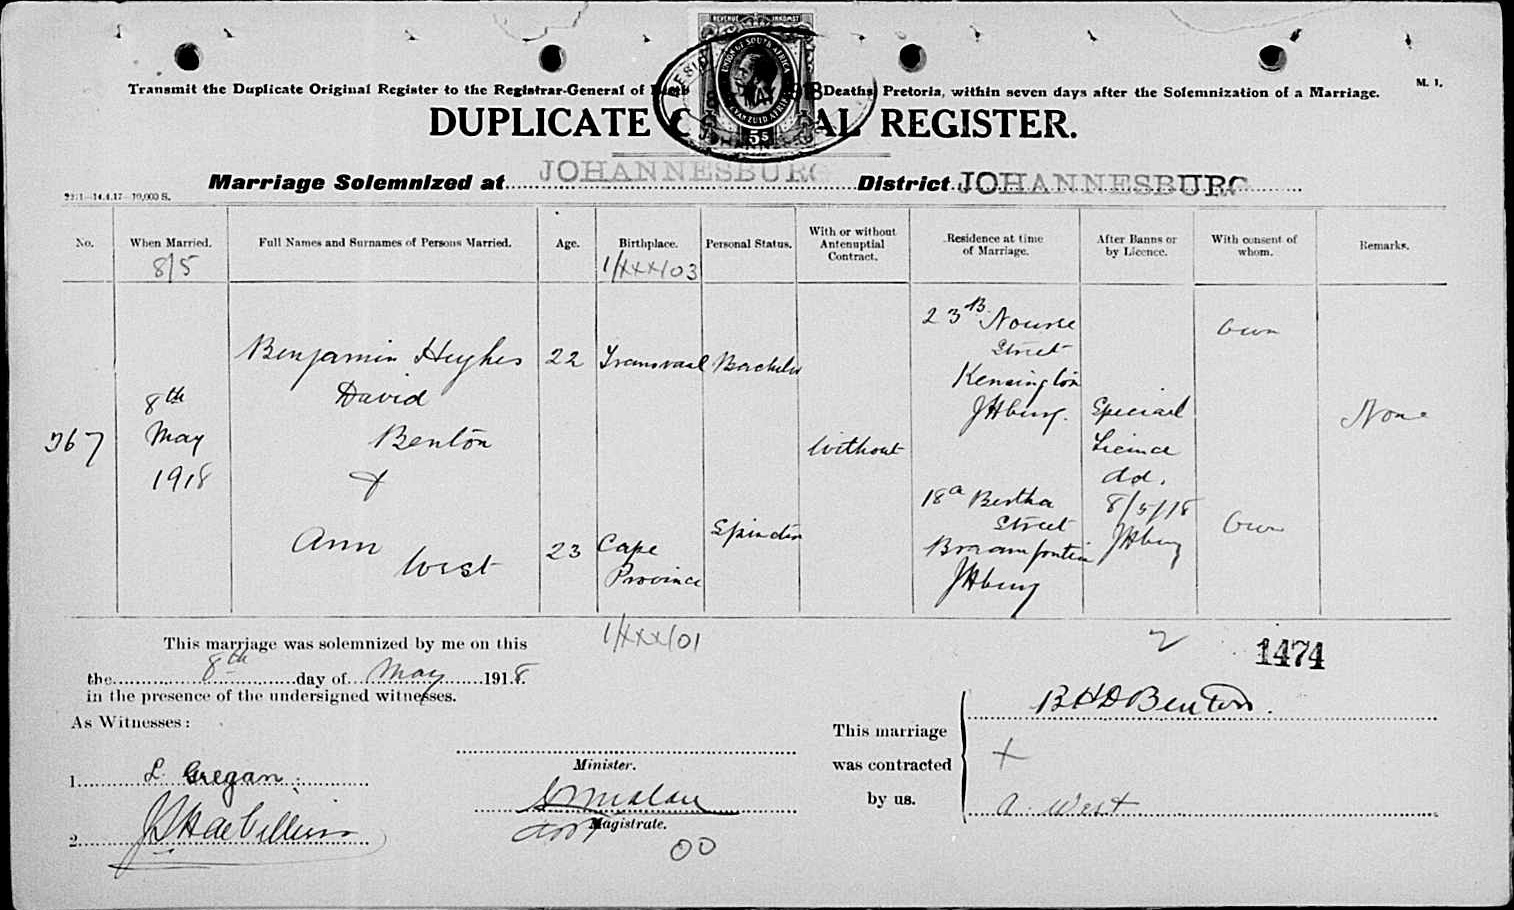 M. 1.
Transmit the Duplicate Original Register to the Registrar-General of Deaths Pretoria, within seven days after the Solemnization of a Marriage.
REVENUE INKOMST
UNION OF SOUTH AFRICA
MAY 1918
5s
JOHANNESBURG
DUPLICATE REGISTER.
Marriage Solemnized at JOHANNESBURG District JOHANNESBURG
No. When Married. Full Names and Surnames of Persons Married. Age. Birthplace. Personal Status. With or without Antenuptial Contract. Residence at time of Marriage. After Banns or by Licence. With consent of whom. Remarks.
8/5 1/xxx/03
367
8th
May
1918
Benjamin Hughes
David
Benton
&
Ann
West
22
23
Transvaal
Cape
Province
Bachelor
Spinster
Without
23B Nourse
Street
Kensington
JHburg.
18a Bertha
Street
Braamfontein
JHburg
Special
Licence
dd.
8/5/18
JHburg
Own
Own
None
1/xxx/01
2
1474
This marriage was solemnized by me on this
the 8th day of May 1918.
in the presence of the undersigned witnesses.
As Witnesses:
1 L. Gregan
2 de Villiers
Minister.
Malan
Magistrate.
00
This marriage
was contracted
by us.
B H D Benton.
+
A. West